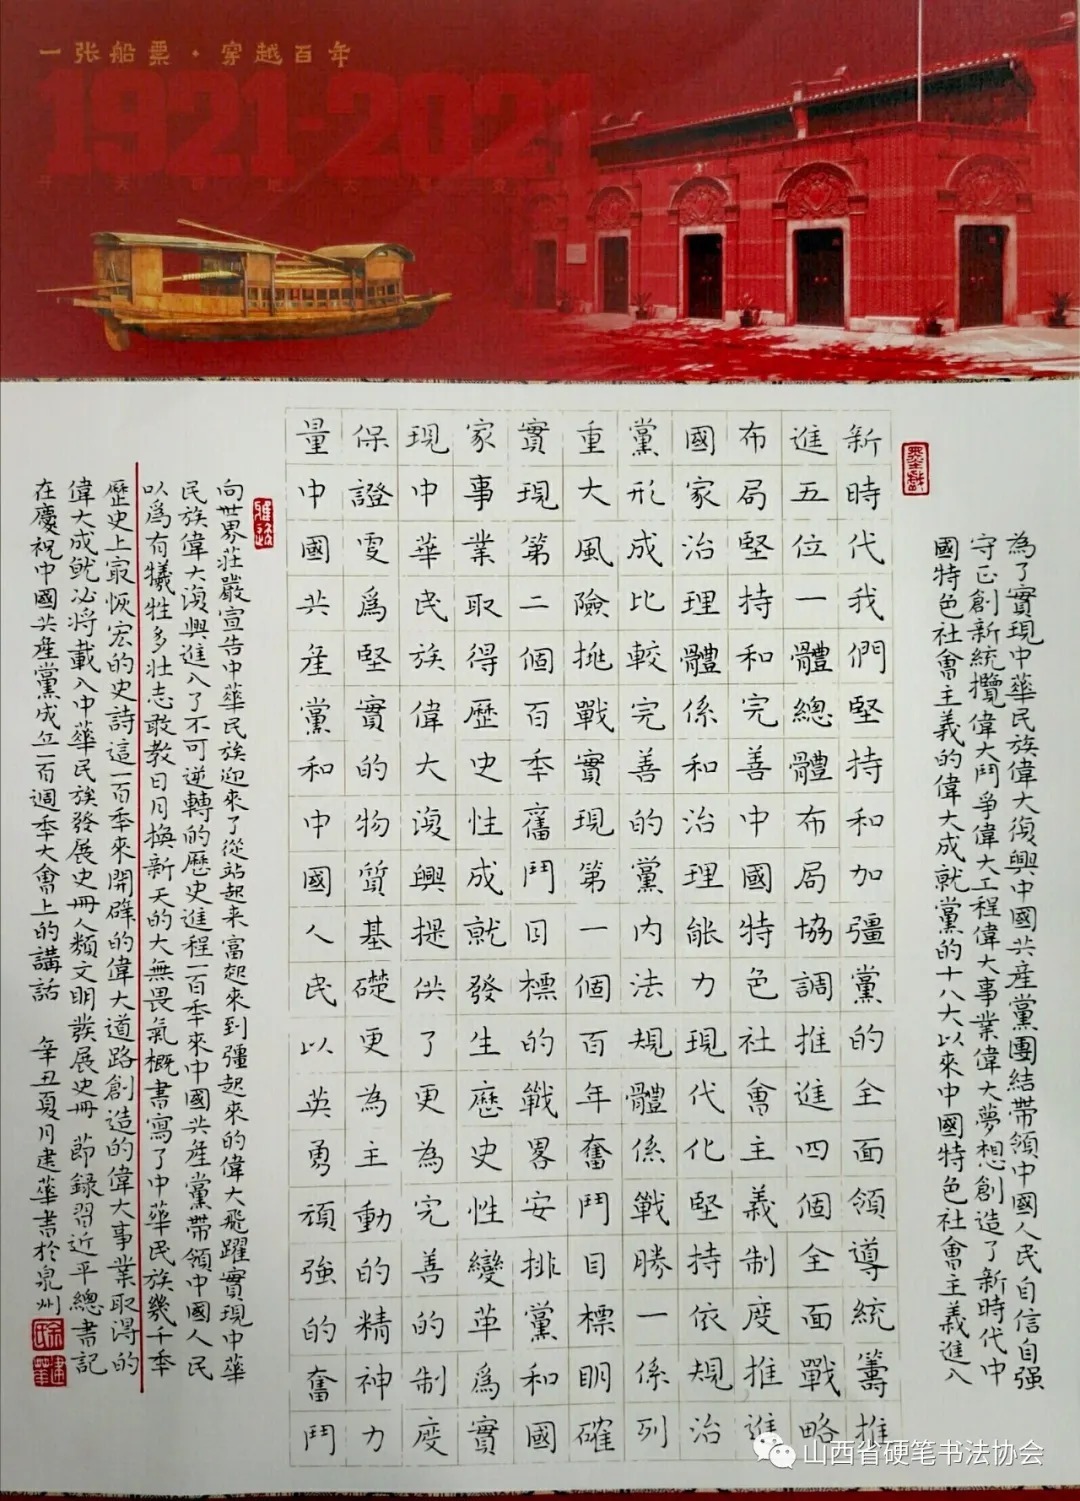 一张船票·穿越百年
1921-2021
為了實現中華民族偉大復興中國共産黨團結帶領中國人民自信自强
守正創新統攬偉大鬥爭偉大工程偉大事業偉大夢想創造了新時代中
國特色社會主義的偉大成就黨的十八大以來中國特色社會主義進入
新時代我們堅持和加彊黨的全面領導統籌推
進五位一體總體布局協調推進四個全面戰略
布局堅持和完善中國特色社會主義制度推進
國家治理體係和治理能力現代化堅持依規治
黨形成比較完善的黨内法規體係戰勝一係列
重大風險挑戰實現第一個百年奮鬥目標明確
實現第二個百年奮鬥目標的戰畧安排黨和國
家事業取得歷史性成就發生歷史性變革爲實
現中華民族偉大復興提供了更為完善的制度
保證更爲堅實的物質基礎更為主動的精神力
量中國共産黨和中國人民以英勇頑強的奮鬥
向世界莊嚴宣告中華民族迎來了從站起来富起來到彊起來的偉大飛躍實現中華
民族偉大復興進入了不可逆轉的歷史進程一百年來中國共産黨帶領中國人民
以爲有犧牲多壮志敢教日月換新天的大無畏氣概書寫了中華民族幾千年
歷史上最恢宏的史詩這一百年來開辟的偉大道路創造的偉大事業取得的
偉大成就必将載入中華民族發展史冊人類文明發展史冊 節録習近平總書記
在慶祝中國共産黨成立一百週年大會上的講話 辛丑夏月建華書於泉州
山西省硬笔书法协会